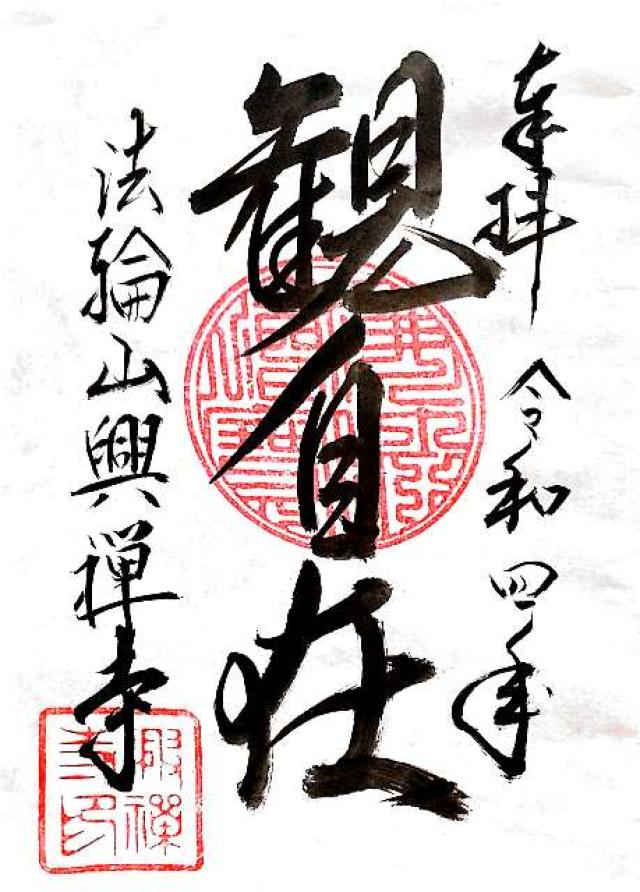 奉拝 令和四年
観自在
法輪山興禅寺
興禅
寺印